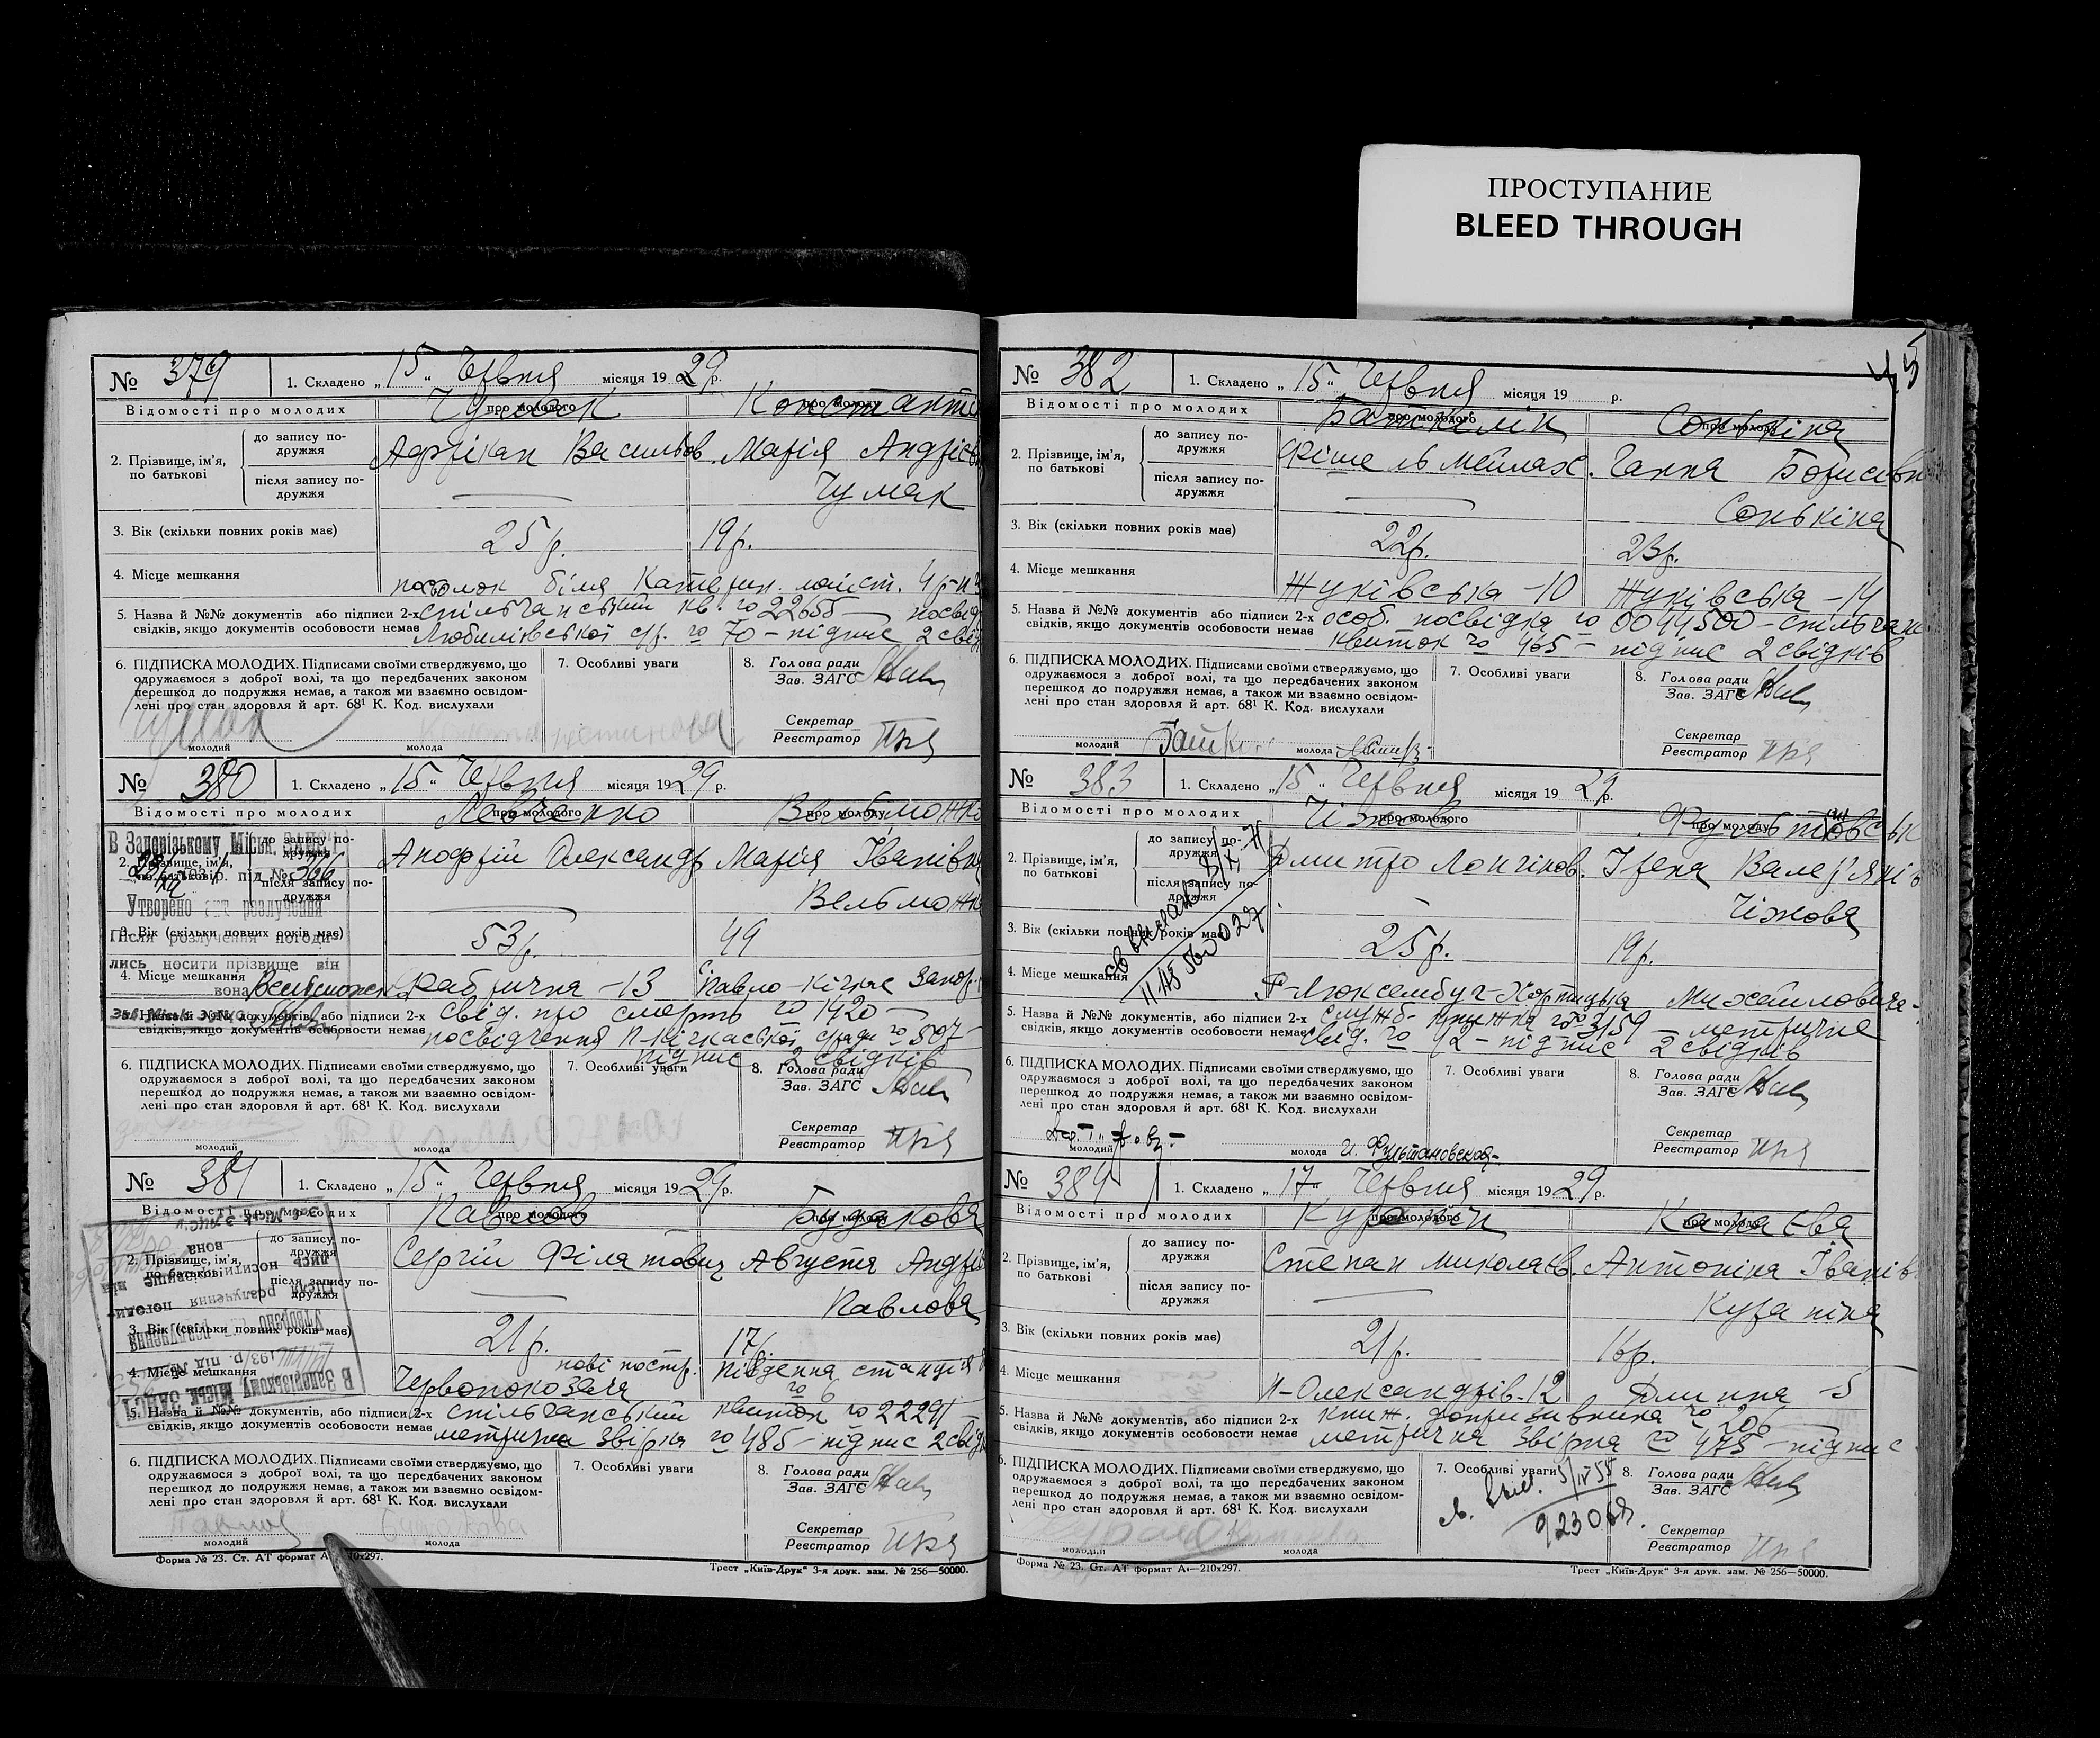 ПРОСТУПАНИЕ
BLEED THROUGH
№ 379
1. Складено „15“ Червня місяця 1929 р.
Відомості про молодих
про молодого
про молоду
Чумак
Константи
2. Прізвище, ім’я, по батькові
до запису по-
дружжя
Афрікан Васильов. Марія Андрієвн
після запису по-
дружжя
Чумак
3. Вік (скільки повних років має)
25 р.
19 р.
4. Місце мешкання
біля
5. Назва й №№ документів або підписи 2-х
свідків, якщо документів особовости немає
спільчанський кв. № 22655 – посвід
Любимівської с/р. № 70 – підпис 2 свід
6. ПІДПИСКА МОЛОДИХ. Підписами своїми стверджуємо, що
одружаємося з доброї волі, та що передбачених законом
перешкод до подружжя немає, а також ми взаємно освідом-
лені про стан здоровля й арт. 68¹ К. Код. вислухали
7. Особливі уваги
8. Голова ради
Зав. ЗАГС
Секретар
Реєстратор
Чумак
молодий
молода
№ 380
1. Складено „15“ Червня місяця 1929 р.
Відомості про молодих
про молодого
про молоду
Левченко
Вельможко
2. Прізвище, ім’я,
по батькові
до запису по-
дружжя
Олександр Марія Іванівна
після запису по-
дружжя
Вельможн
В Запорізькому Міськ. ЗАГСІ
р. під № 366
Утворено акт розлучення
Після розлучення погоди-
лись носити прізвище він
вона
3. Вік (скільки повних років має)
53 р.
49
4. Місце мешкання
Фабрична – 13
Павло-Кічкас Запор.
5. Назва й №№ документів, або підписи 2-х
свідків, якщо документів особовости немає
свід. про смерть № 1420 –
посвідчення П-Кічкаської с/ради № 507 –
підпис 2 свідків
6. ПІДПИСКА МОЛОДИХ. Підписами своїми стверджуємо, що
одружаємося з доброї волі, та що передбачених законом
перешкод до подружжя немає, а також ми взаємно освідом-
лені про стан здоровля й арт. 68¹ К. Код. вислухали
7. Особливі уваги
8. Голова ради
Зав. ЗАГС
Секретар
Реєстратор
молодий
молода
№ 381
1. Складено „15“ Червня місяця 1929 р.
Відомості про молодих
про молодого
про молоду
Павлов
Будакова
2. Прізвище, ім’я,
по батькові
до запису по-
дружжя
Сергій Філатович Августа Андрі
після запису по-
дружжя
Павлова
В Запорізькому Міськ. ЗАГСІ
193 р. під №
Утворено акт розлучення
Після розлучення погоди-
лись носити прізвище він
вона
3. Вік (скільки повних років має)
21 р.
17 р.
4. Місце мешкання
Червонокозача
нові постр.
Південна станція
№ 6
5. Назва й №№ документів, або підписи 2-х
свідків, якщо документів особовости немає
спільчанський квиток № 22291 –
метрична звірка № 485 – підпис 2 свід
6. ПІДПИСКА МОЛОДИХ. Підписами своїми стверджуємо, що
одружаємося з доброї волі, та що передбачених законом
перешкод до подружжя немає, а також ми взаємно освідом-
лені про стан здоровля й арт. 68¹ К. Код. вислухали
7. Особливі уваги
8. Голова ради
Зав. ЗАГС
Секретар
Реєстратор
Павлов
молодий
молода
Форма № 23. Ст. АТ формат А 210х297.
Трест „Київ-Друк“ 3-я друк. зам. № 256—50000.
45
№ 382
1. Складено „15“ Червня місяця 19 р.
Відомості про молодих
про молодого
про молоду
Сонькіна
2. Прізвище, ім’я,
по батькові
до запису по-
дружжя
Фішель Мейлах. Ганна Борисівн
після запису по-
дружжя
Сонькіна
3. Вік (скільки повних років має)
22 р.
23 р.
4. Місце мешкання
Жуківська – 10
Жуківська – 14
5. Назва й №№ документів, або підписи 2-х
свідків, якщо документів особовости немає
особ. посвідка № 0044500 – спільчан.
квиток № 465 – підпис 2 свідків
6. ПІДПИСКА МОЛОДИХ. Підписами своїми стверджуємо, що
одружаємося з доброї волі, та що передбачених законом
перешкод до подружжя немає, а також ми взаємно освідом-
лені про стан здоровля й арт. 68¹ К. Код. вислухали
7. Особливі уваги
8. Голова ради
Зав. ЗАГС
Секретар
Реєстратор
молодий
молода
№ 383
1. Складено „15“ Червня місяця 1929 р.
Відомості про молодих
про молодого
про молоду
Чіжов
2. Прізвище, ім’я,
по батькові
до запису по-
дружжя
Дмитро Лонгінов. Ірена Валер’янів
після запису по-
дружжя
Чіжова
3. Вік (скільки повних років має)
25 р.
19 р.
4. Місце мешкання
Р-Люксембург-Хортицька
Михайловича
5. Назва й №№ документів, або підписи 2-х
свідків, якщо документів особовости немає
служб. книжка № 3159 – метричне
свід. № 92 – підпис 2 свідків
6. ПІДПИСКА МОЛОДИХ. Підписами своїми стверджуємо, що
одружаємося з доброї волі, та що передбачених законом
перешкод до подружжя немає, а також ми взаємно освідом-
лені про стан здоровля й арт. 68¹ К. Код. вислухали
7. Особливі уваги
8. Голова ради
Зав. ЗАГС
Секретар
Реєстратор
молодий
молода
№ 384
1. Складено „17“ Червня місяця 1929 р.
Відомості про молодих
про молодого
про молоду
Канаєва
2. Прізвище, ім’я,
по батькові
до запису по-
дружжя
Степан Миколаєв. Антоніна Іванів
після запису по-
дружжя
3. Вік (скільки повних років має)
21 р.
16 р.
4. Місце мешкання
Н-Олександрів. 12
– 5
5. Назва й №№ документів, або підписи 2-х
свідків, якщо документів особовости немає
книж. допризивника № 206
метрична звірка № 475 – підпис
6. ПІДПИСКА МОЛОДИХ. Підписами своїми стверджуємо, що
одружаємося з доброї волі, та що передбачених законом
перешкод до подружжя немає, а також ми взаємно освідом-
лені про стан здоровля й арт. 68¹ К. Код. вислухали
7. Особливі уваги
8. Голова ради
Зав. ЗАГС
Секретар
Реєстратор
молодий
молода
Форма № 23. Ст. АТ формат А₄—210х297.
Трест „Київ-Друк“ 3-я друк. зам. № 256—50000.